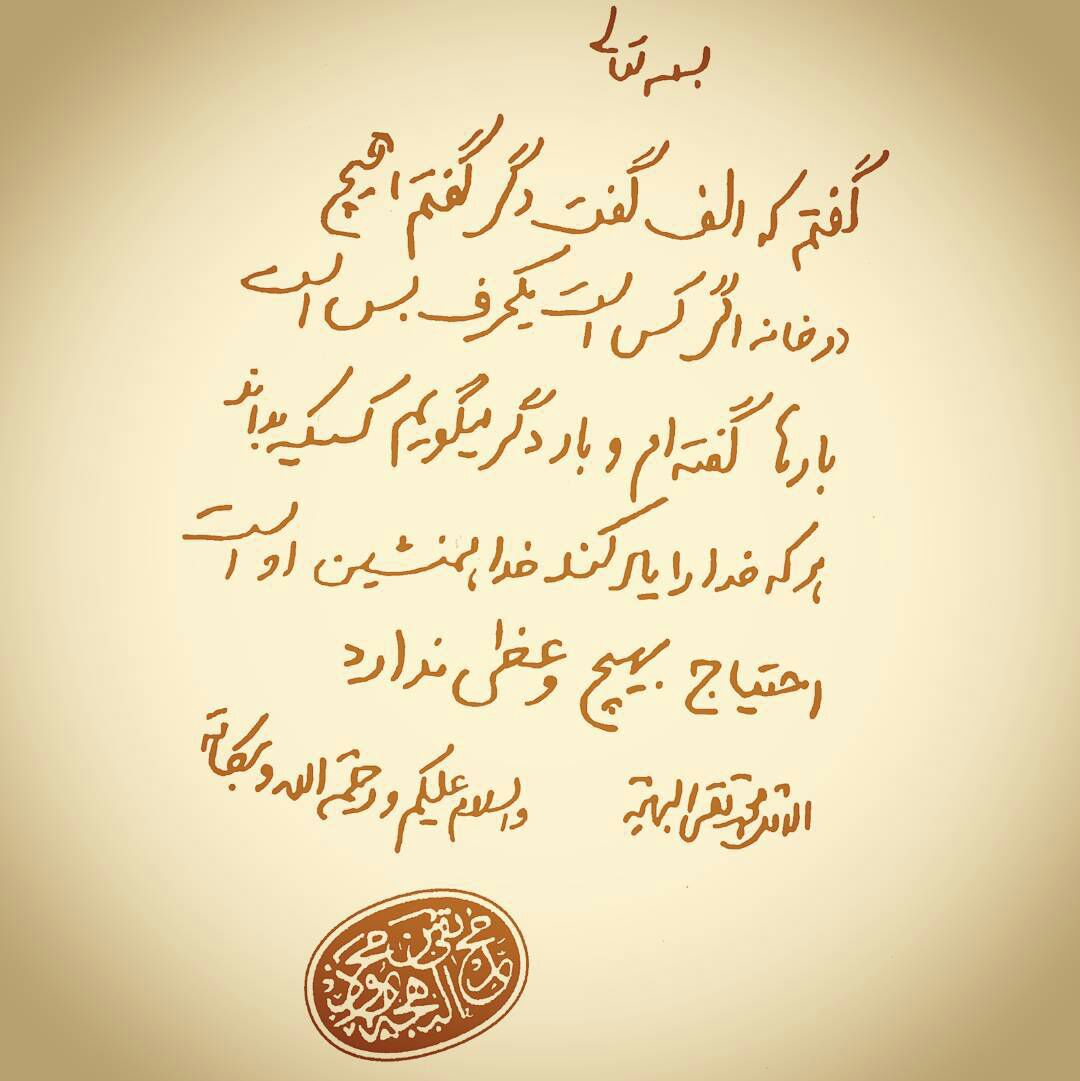 بسمه تعالی
گفتم که الف گفت دگر گفتم هیچ
در خانه اگر کس است یکحرف بس است
بارها گفته ام و بار دگر میگویم کسیکه بداند
هر که خدا را یاد کند خدا همنشین او است
احتیاج بهیچ وعظی ندارد
الاقل محمد تقی البهجة والسلام علیکم ورحمة الله وبرکاته
محمد تقی بن محمود
البهجة